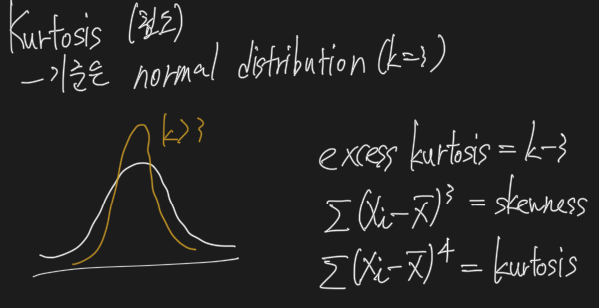 Kurtosis (첨도)
- 기준은 normal distribution (k=3)
k>3
excess kurtosis = k-3
∑(xi-x̄)³ = skewness
∑(xi-x̄)⁴ = kurtosis